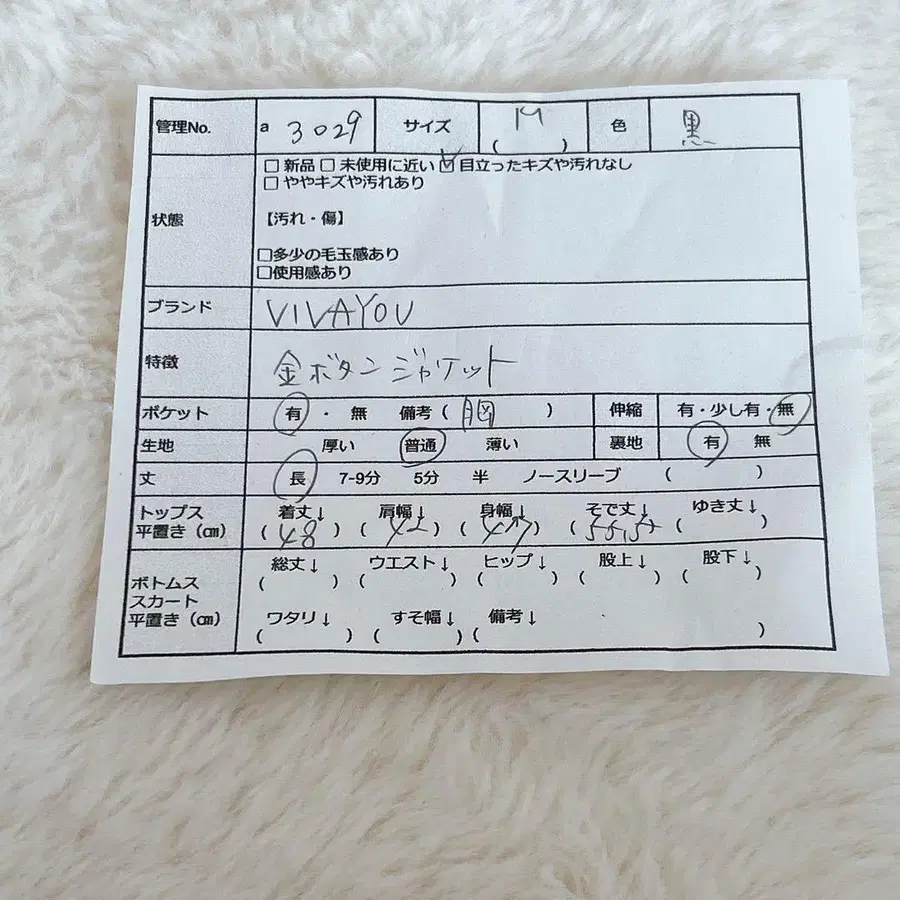 管理No. a 3029 サイズ M ( ) 色 黒
□ 新品 □ 未使用に近い ☑ 目立ったキズや汚れなし
□ ややキズや汚れあり
状態 【汚れ・傷】
□多少の毛玉感あり
□使用感あり
ブランド VIVAYOU
特徴 金ボタンジャケット
ポケット 有 ・ 無 備考 ( 胸 ) 伸縮 有・少し有・無
生地 厚い 普通 薄い 裏地 有 無
丈 長 7-9分 5分 半 ノースリーブ ( )
トップス 着丈↓ 肩幅↓ 身幅↓ そで丈↓ ゆき丈↓
平置き (㎝) ( 48 ) ( 42 ) ( 47 ) ( ) ( )
総丈↓ ウエスト↓ ヒップ↓ 股上↓ 股下↓
ボトムス ( ) ( ) ( ) ( ) ( )
スカート
平置き (㎝) ワタリ↓ すそ幅↓ 備考↓
( ) ( ) ( )